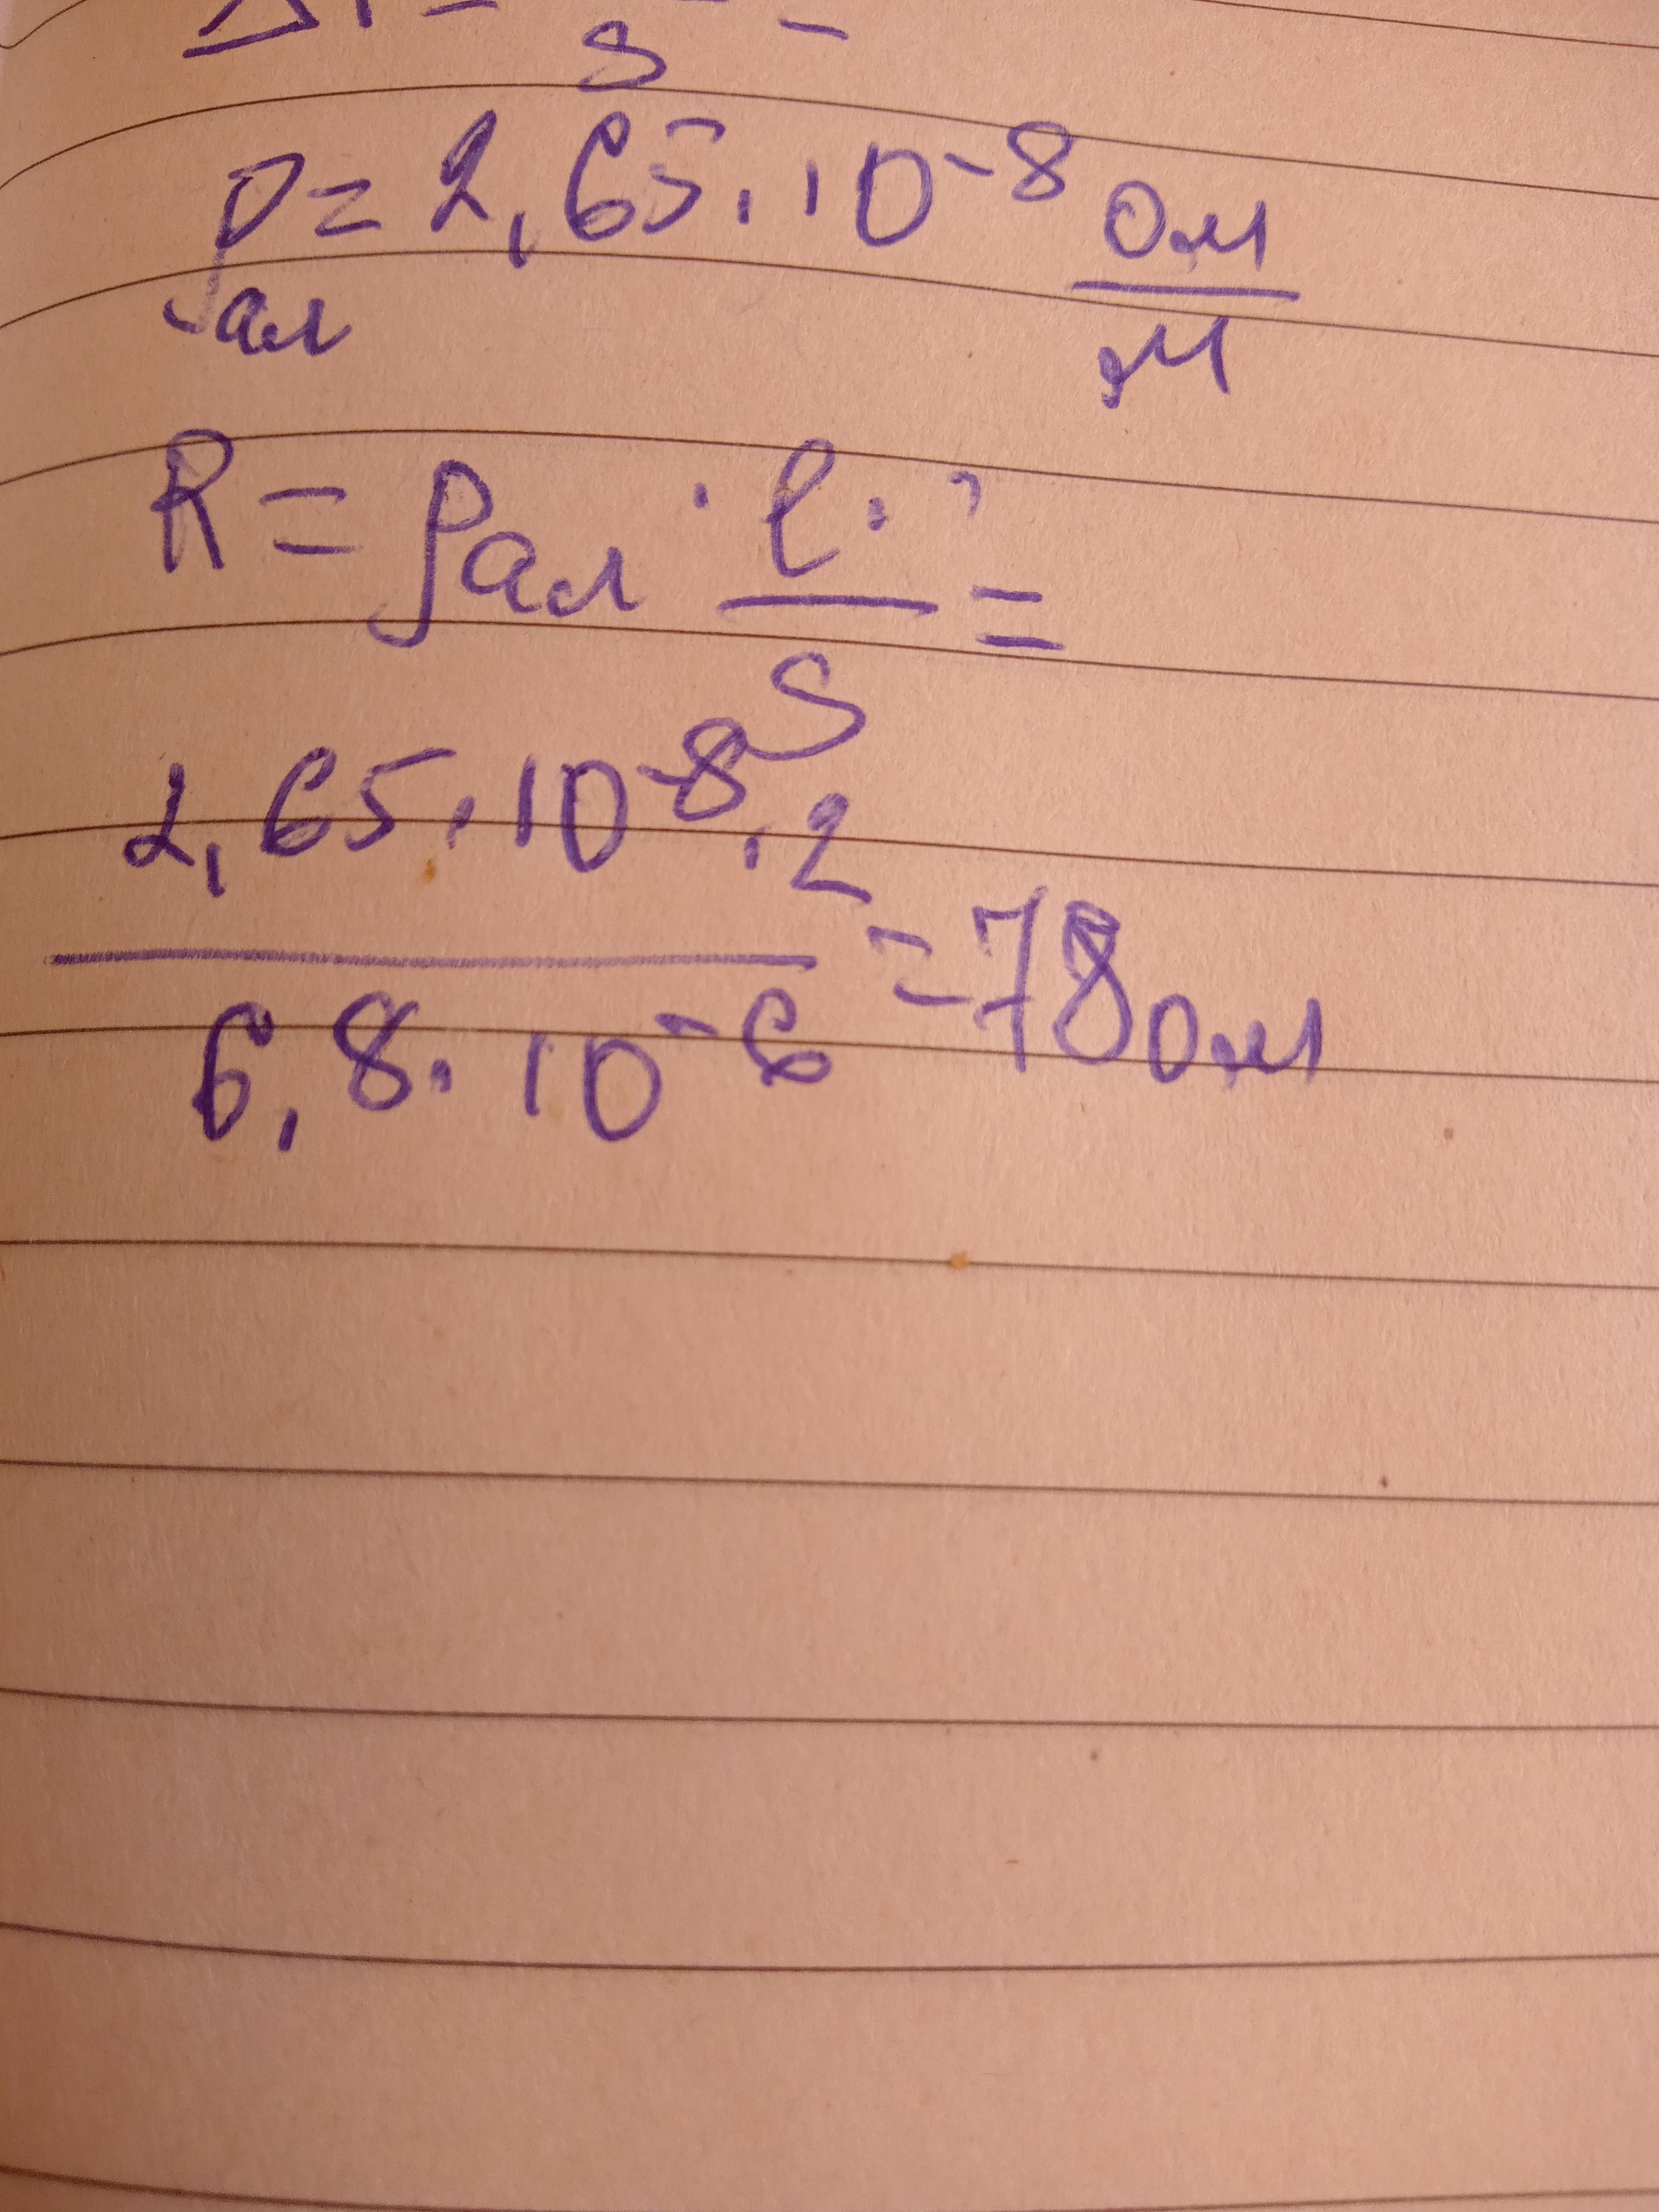 S
ρал = 2,65 · 10⁻⁸ Ом/м
R = ρал · l · / S =
2,65 · 10⁻⁸ · 2 / 6,8 · 10⁻⁶ = 78 Ом